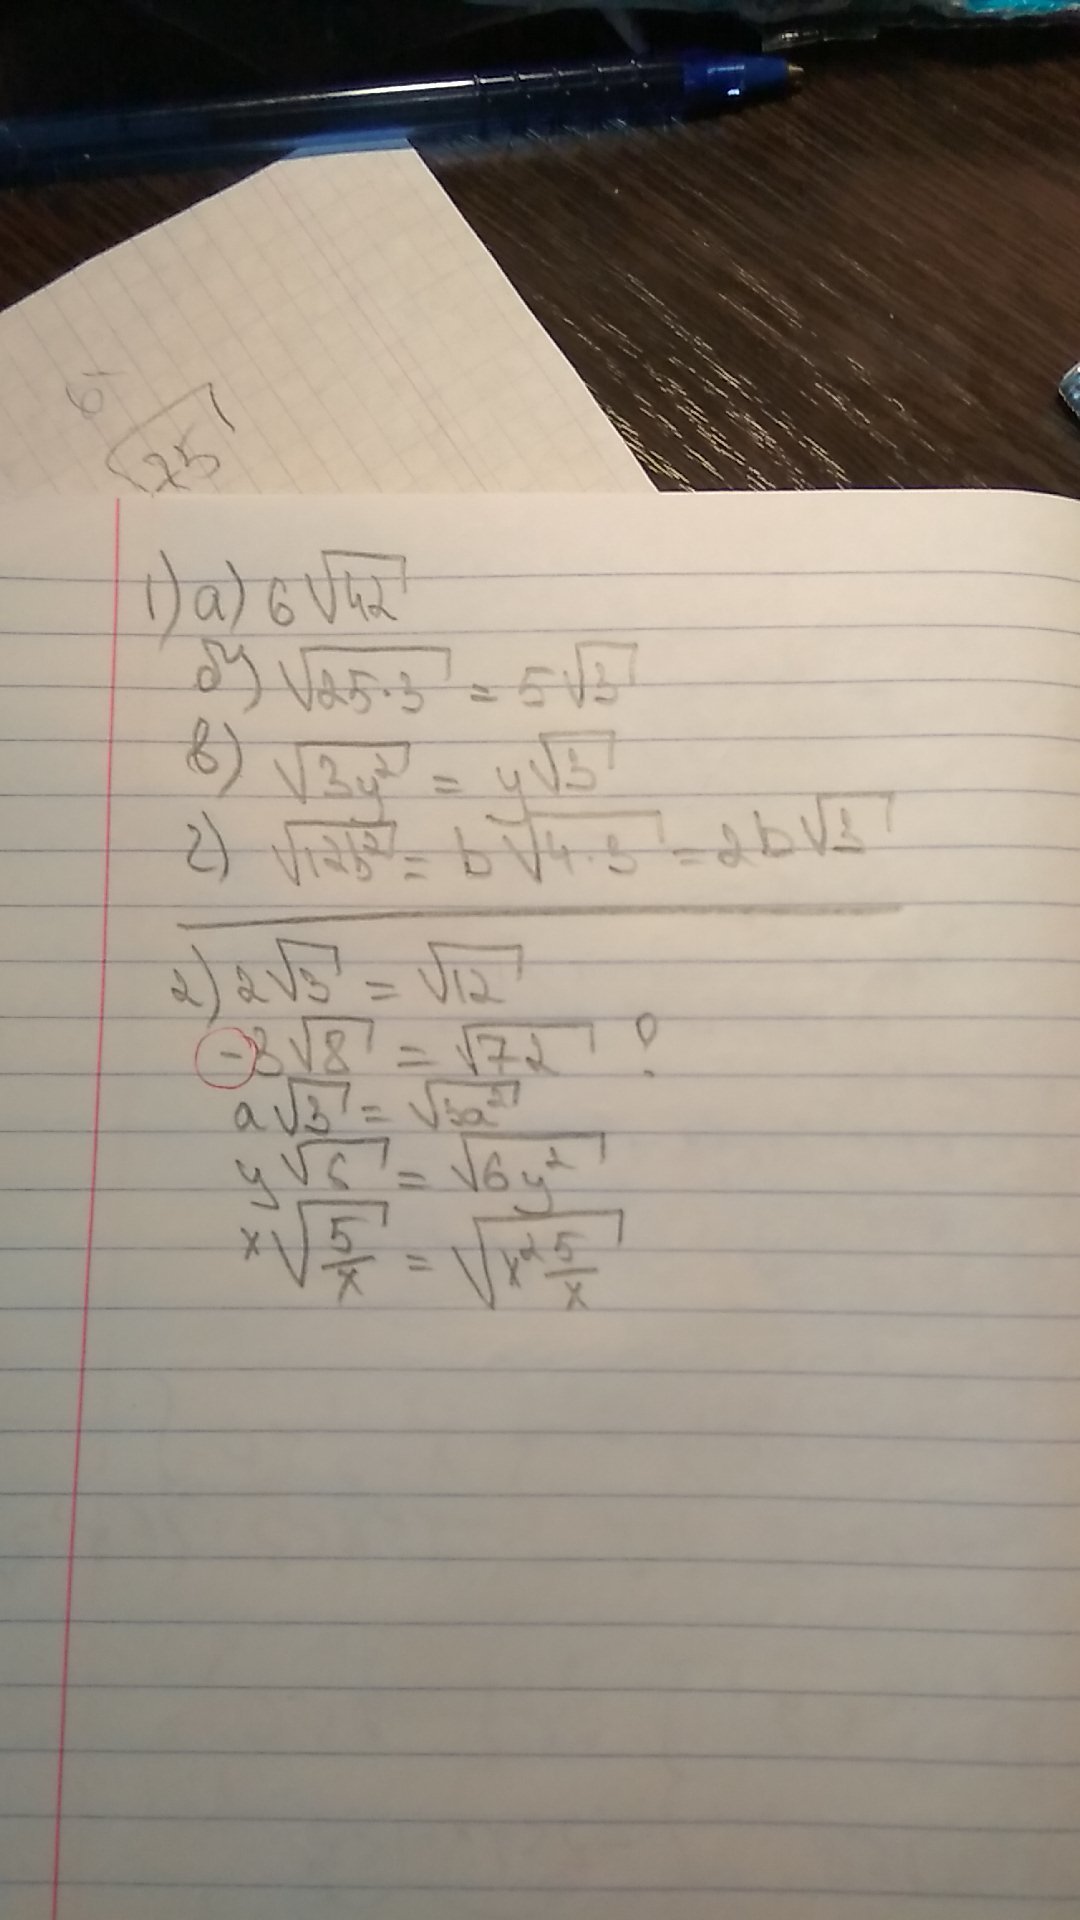 √25
1) а) 6√42
б) √25·3 = 5√3
в) √3y² = y√3
г) √12b² = b√4·3 = 2b√3
2) 2√3 = √12
-3√8 = √72 !
a√3 = √3a²
y√6 = √6y²
x√5/x = √x² 5/x